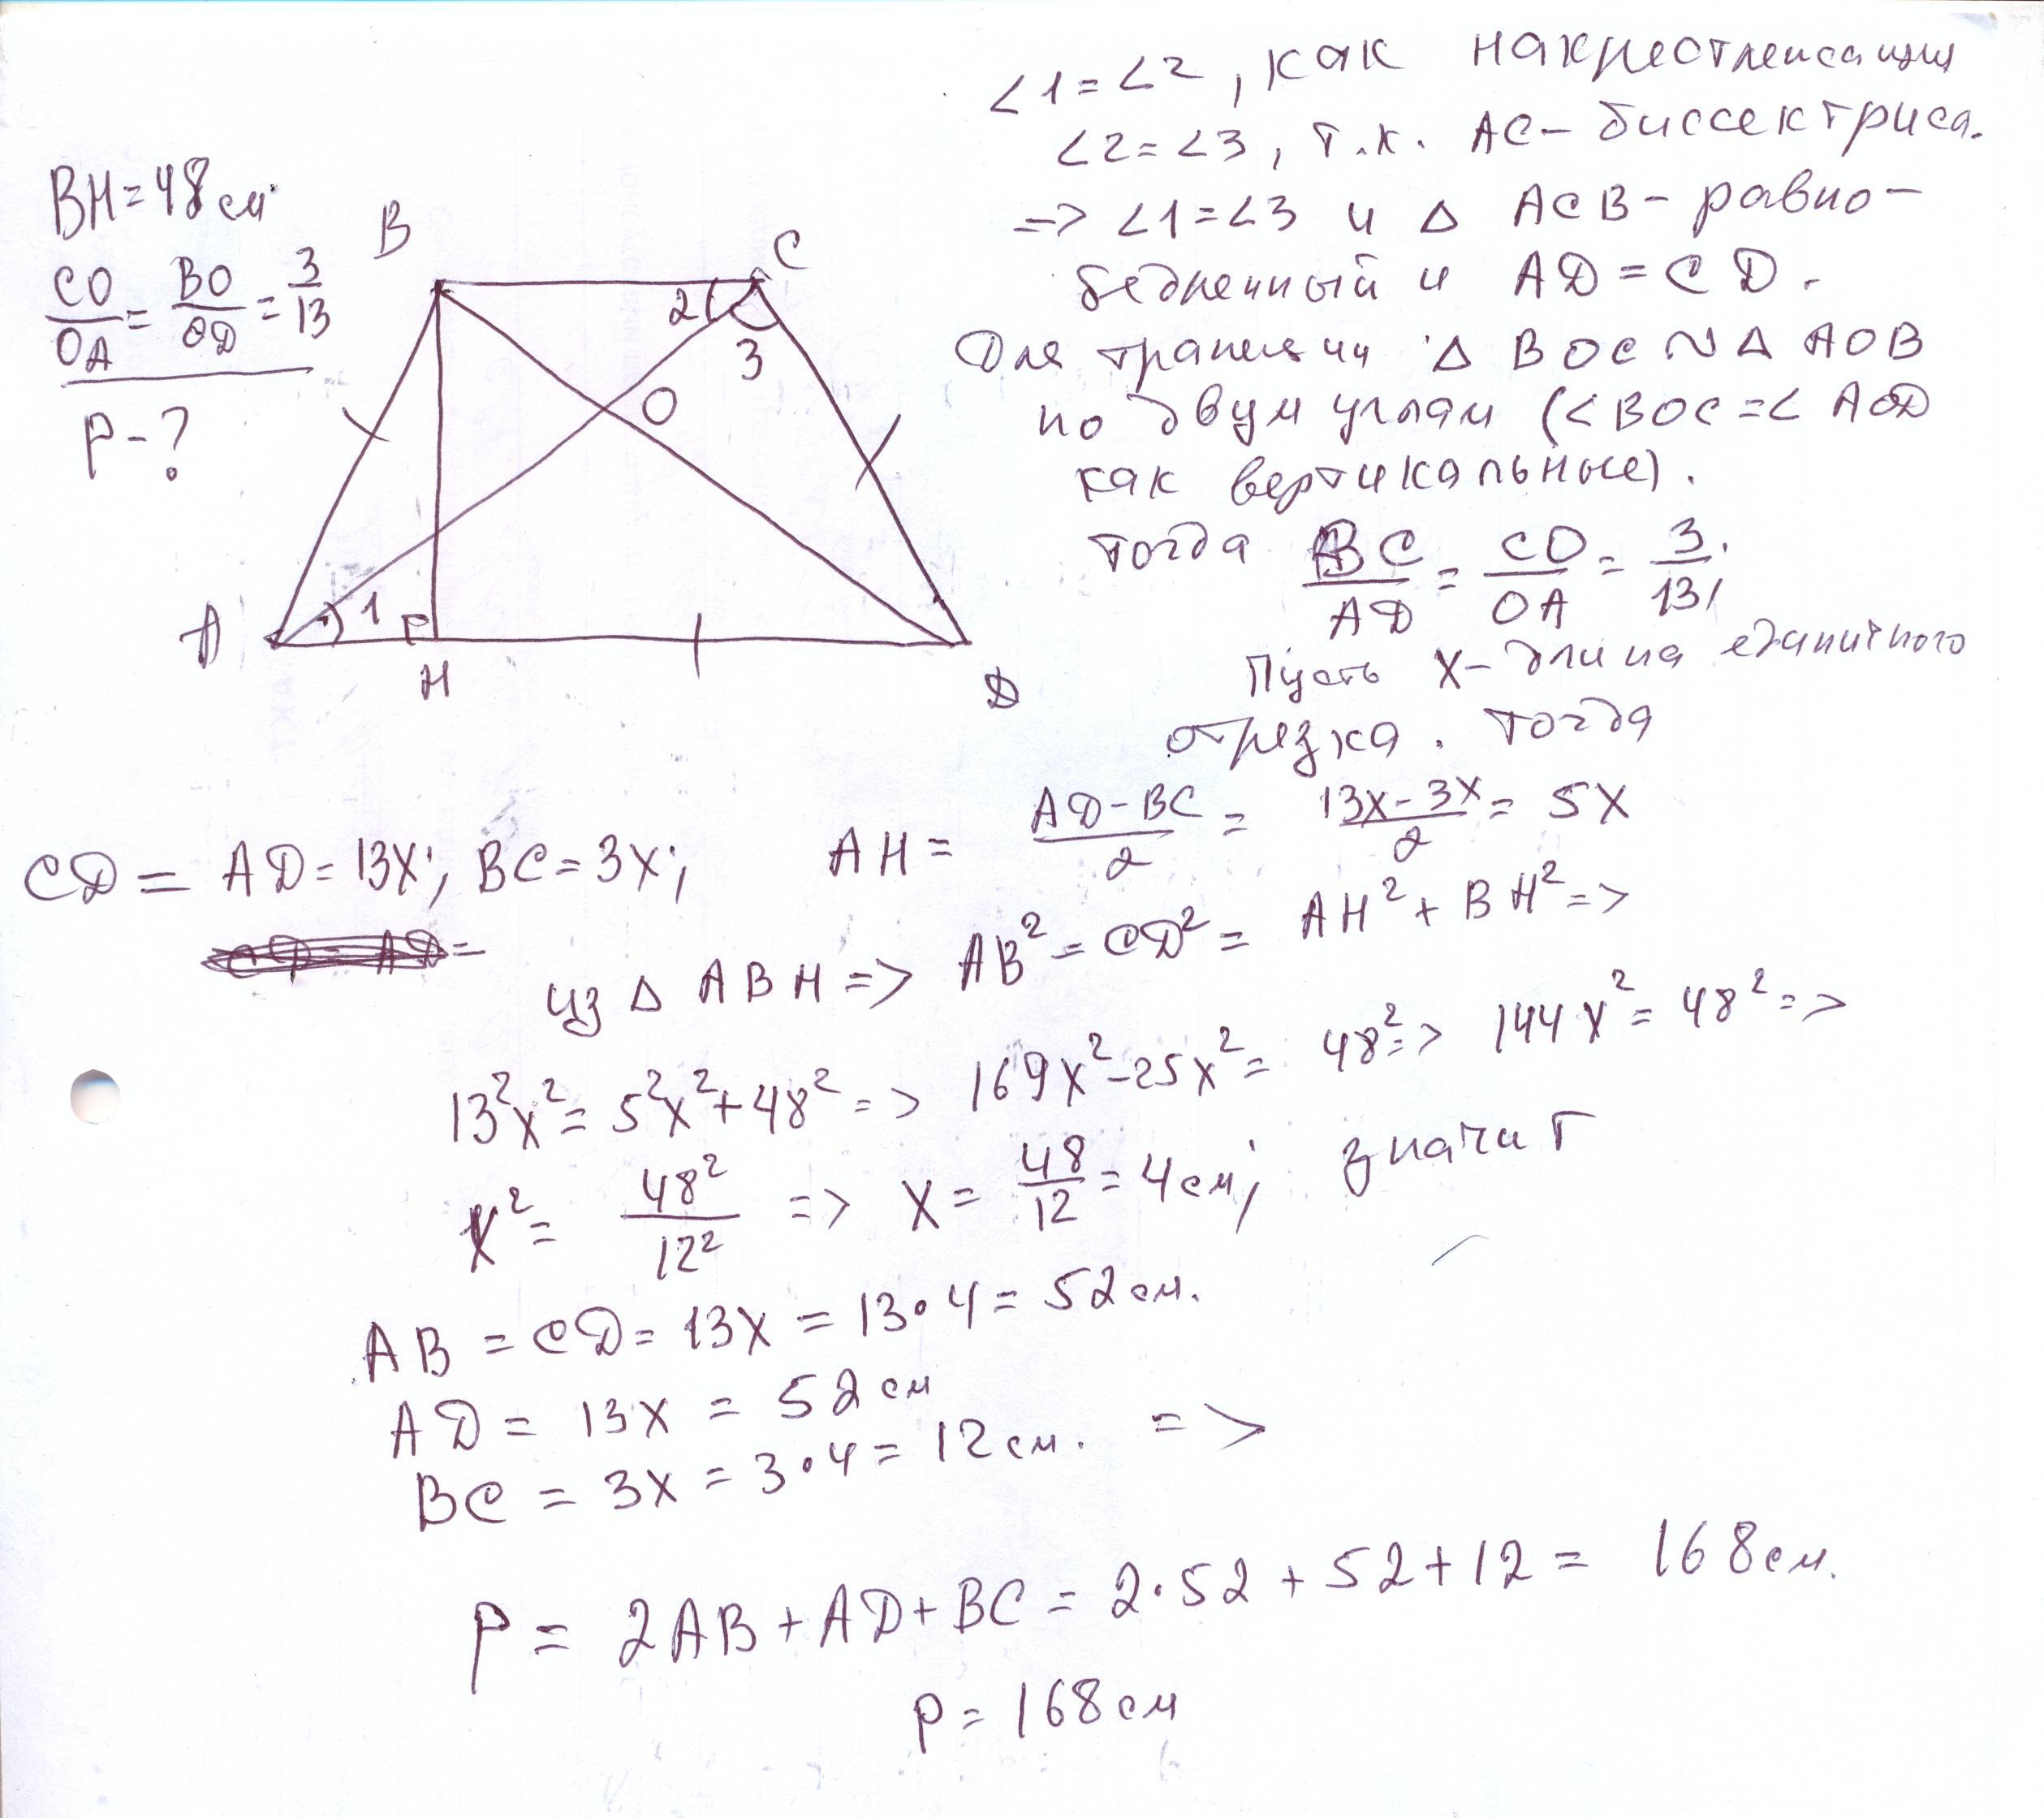 ∠1=∠2, как накрестлежащие
∠2=∠3, т.к. AC- биссектриса.
=> ∠1=∠3 и Δ ACB- равно-
бедренный и AD=CD.
Для трапеции Δ BOC ~ Δ AOB
по двум углам (∠BOC=∠AOD
как вертикальные).
тогда BC/AD = CO/OA = 3/13;
Пусть X- длина единичного
отрезка. Тогда
BH=48см
CO/OA = BO/OD = 3/13
P-?
B
C
2
3
O
1
A
H
D
CD = AD=13X; BC=3X; AH = (AD-BC)/2 = (13X-3X)/2 = 5X
CD= AD=
из Δ ABH => AB²=CD²= AH²+BH² =>
13²X²= 5²X²+48² => 169X²-25X²= 48² => 144X²=48² =>
X²= 48²/12² => X= 48/12 = 4см; значит
AB = CD= 13X = 13·4= 52см.
AD= 13X = 52см
BC = 3X = 3·4= 12см. =>
P= 2AB+AD+BC= 2·52+52+12= 168см.
P= 168см